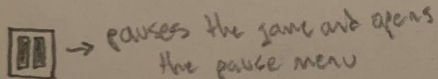 → pauses the game and opens
the pause menu